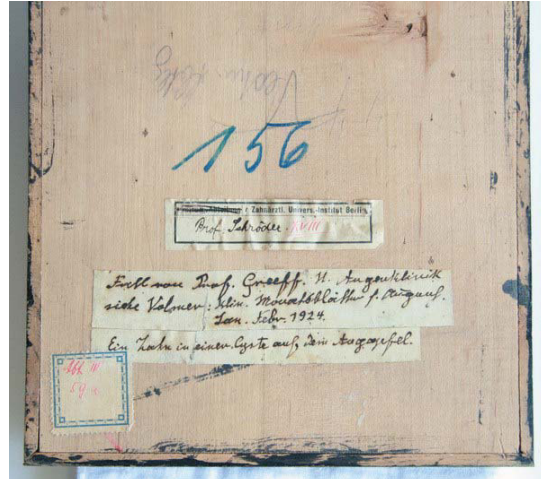 156
Abteilung r Zahnärztl. Univers.-Institut Berlin.
Prof. Schröder. XVIII
Fall von Prof. Greeff. U. Augenklinik
siehe Volmer: Klin. Monatsblätter f. Augenh.
Jan. Febr. 1924.
Ein Zahn in einer Cyste auf dem Augapfel.
Abt III